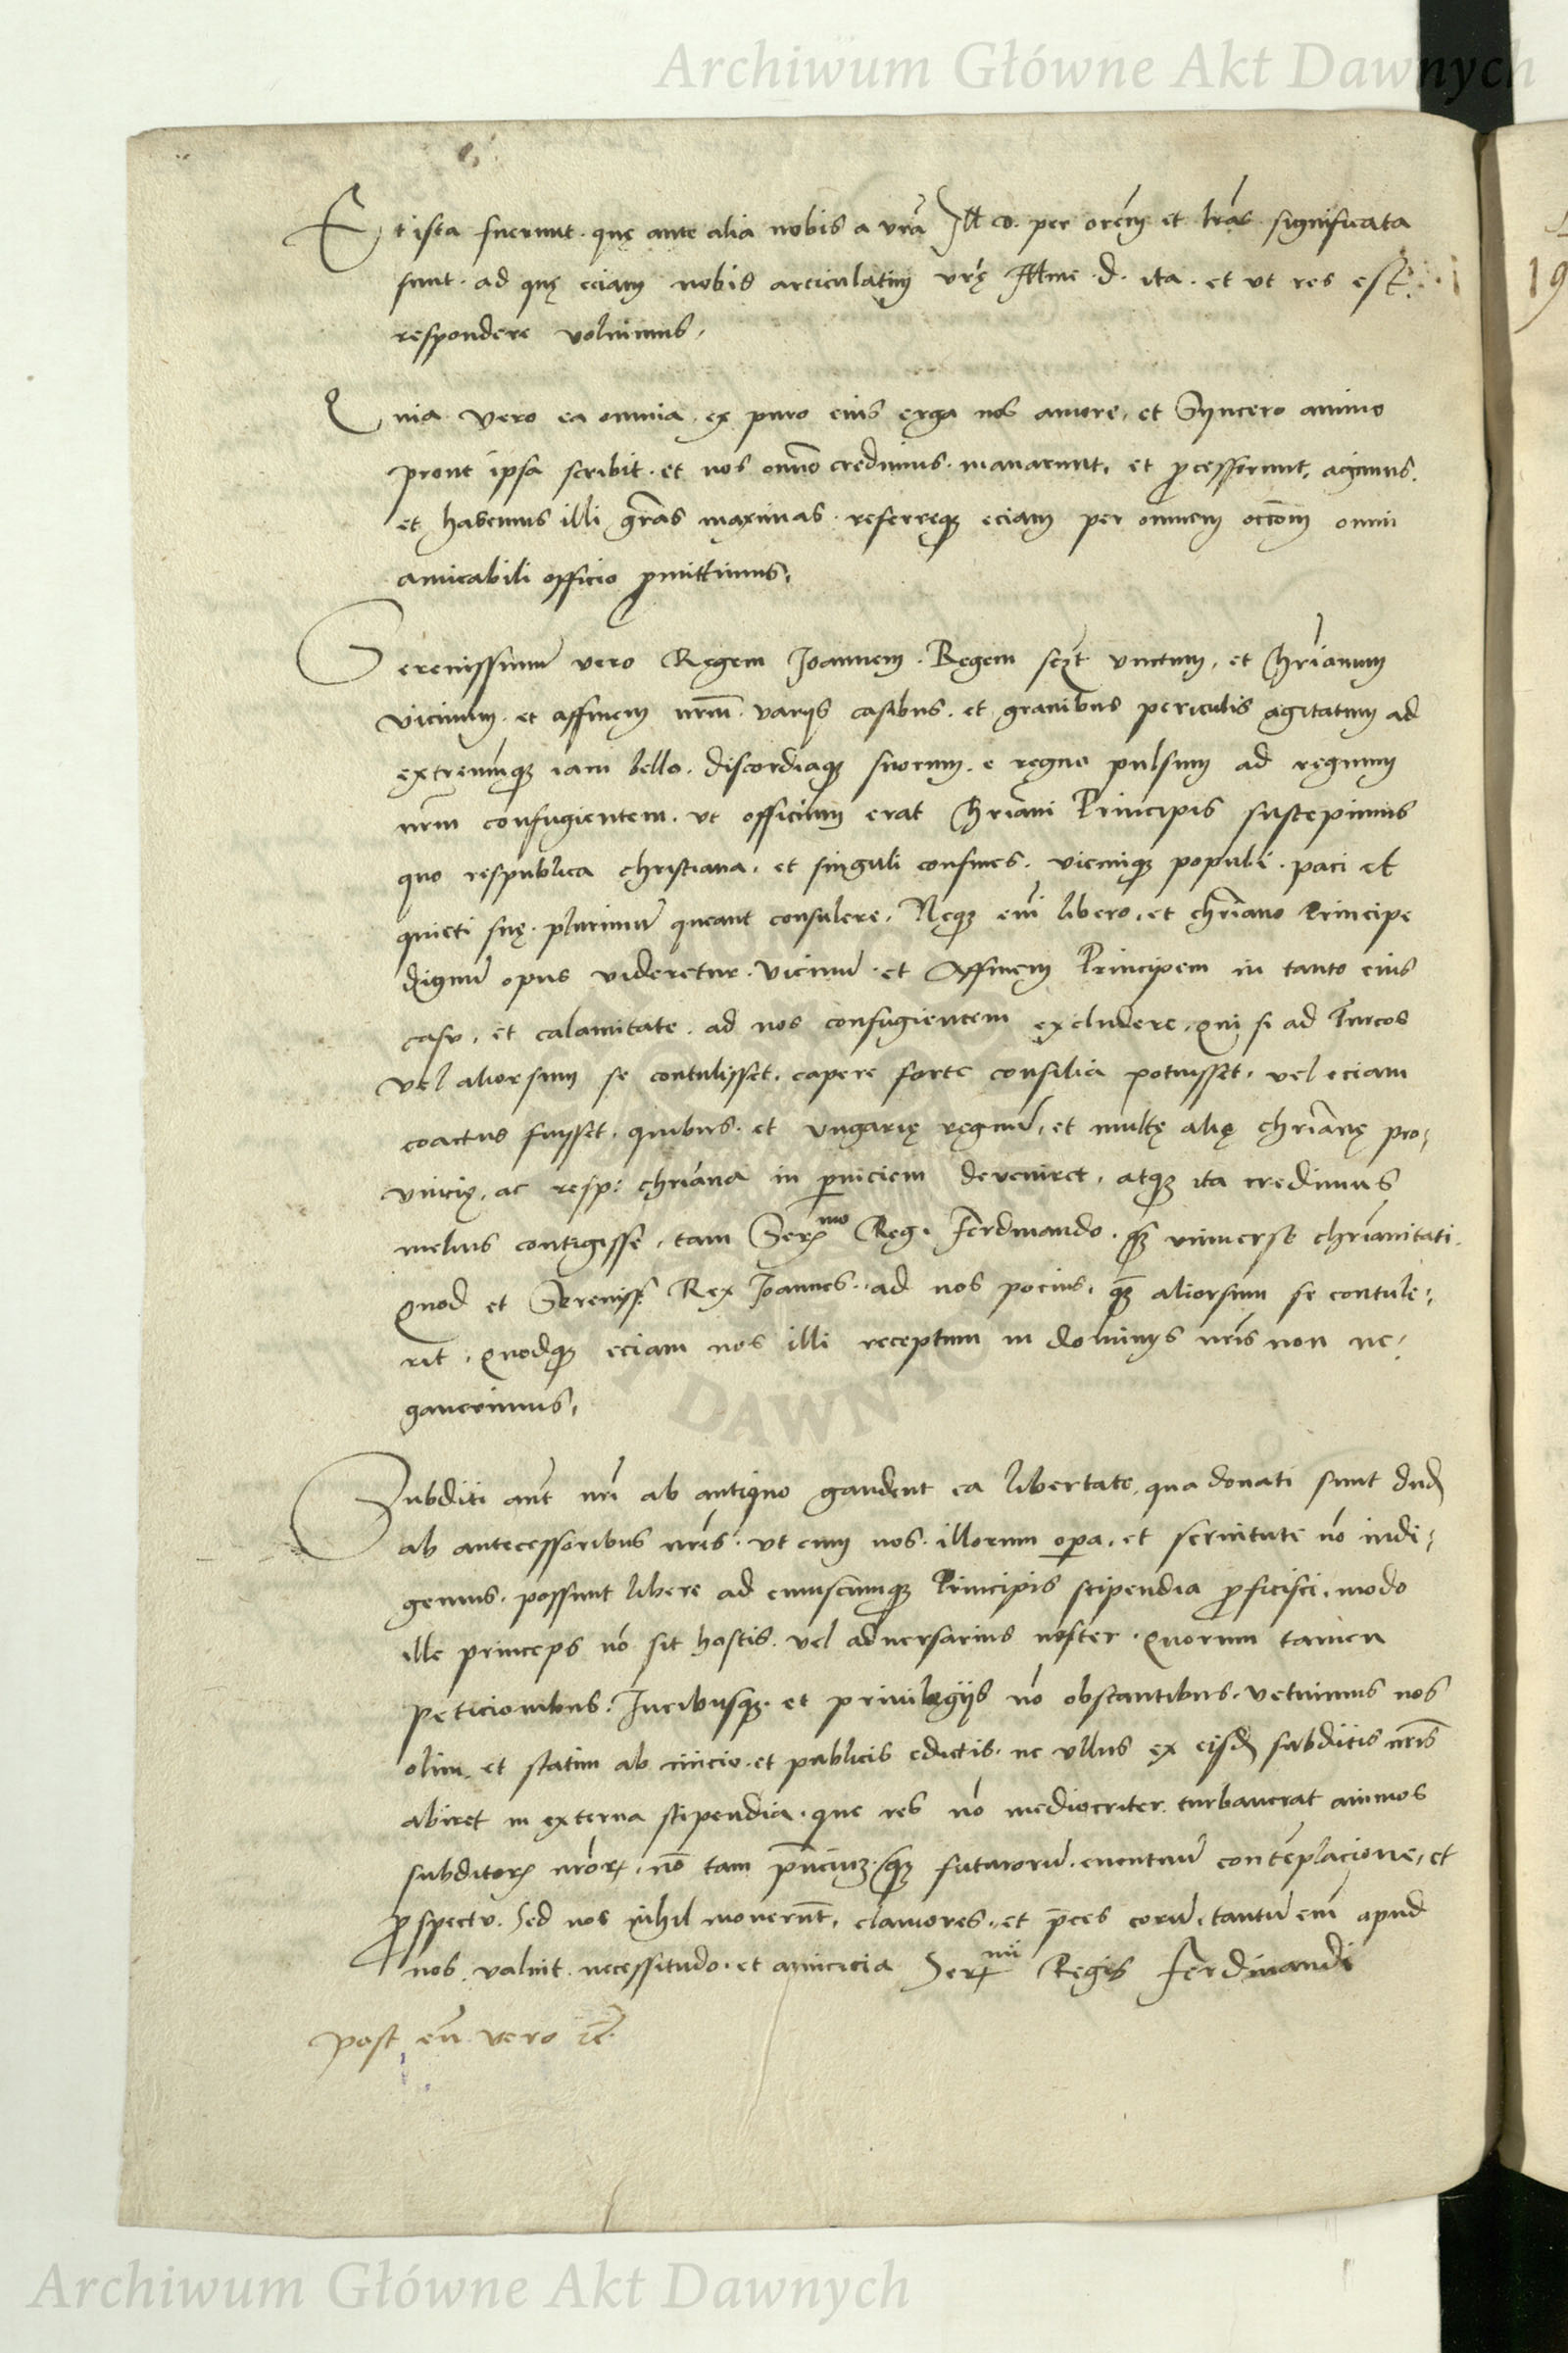 Archiwum Główne Akt Dawnych
Et ista fuerunt. quę ante alia nobis a vrā Ill. co. per orēm et lrās significata
sunt. ad quę eciam nobis articulatim vrę Illme. d. ita. et ut res est
respondere voluimus,
Quia vero ea omnia. ex puro eius erga nos amore, et Syncero animo
prout ipsa scribit. et nos omno credimus. manarunt, et processerunt, agimus.
et habemus illi grās maximas. referreqȝ eciam per omnem occōem omni
amicabili officio promittimus,
Serenissimū vero Regem Joannem. Regem sczt unctum, et Chrīanum
vicinum. et affinem nrm. varijs casibus. et gravibus periculis agitatum ad
extremūqȝ iam bello. discordiaqȝ suorum. e regno pulsum ad regnum
nrm confugientem. ut officium erat Chrīani Principis suscepimus
quo respublica christiana, et singuli confines. vicinique populi. paci et
quieti suę. plurimū queant consulere. Neqȝ em libero, et chrīano Principe
dignū opus videretur. vicinū. et Affinem Principem in tanto eius
casu, et calamitate. ad nos confugientem excludere, qui si ad Turcos
vel aliorsum se contulisset, capere forte consilia potuisset, vel eciam
coactus fuisset. quibus. et Ungarię regnū, et multę alię chrīanę pro,
vincię, ac resp: chrīana in pniciem deveniret, atqȝ ita credimus
melius contigisse, tam Serᵐᵒ Reg. Ferdinando. qȝ universe chrīanitati.
Quod et Sereniss. Rex Joannes. ad nos pocius, qȝ aliorsum se contule,
rit, quodqȝ eciam nos illi receptum in dominijs nris non ne,
gaverimus,
Subditi aūt nri ab antiquo gaudent ea libertate, qua donati sunt dud
ab antecessoribus nris. ut cum nos. illorum opa, et servitute nō indi,
gemus. possunt libere ad cuiuscumqȝ Principis stipendia proficisci, modo
ille princeps nō sit hostis. vel adversarius noster. quorum tamen
peticionibus. Juribusqȝ. et privilegijs nō obstantibus. vetuimus nos
olim. et statim ab inicio. et publicis edictis. ne ullus ex eisd subditis nris
abiret in externa stipendia. que res nō mediocriter. turbaverat animos
subditorꝝ nrorꝝ, nō tam pnciuȝ. qȝ futurorū. eventuū contēplacione, et
prospectu. Sed nos nihil moverūt, clamores, et pces eorū, tantū em apud
nos. valuit. necessitudo. et amicicia Serᵐⁱ Regis Ferdinandi
post eū vero ēc.
19
Archiwum Główne Akt Dawnych